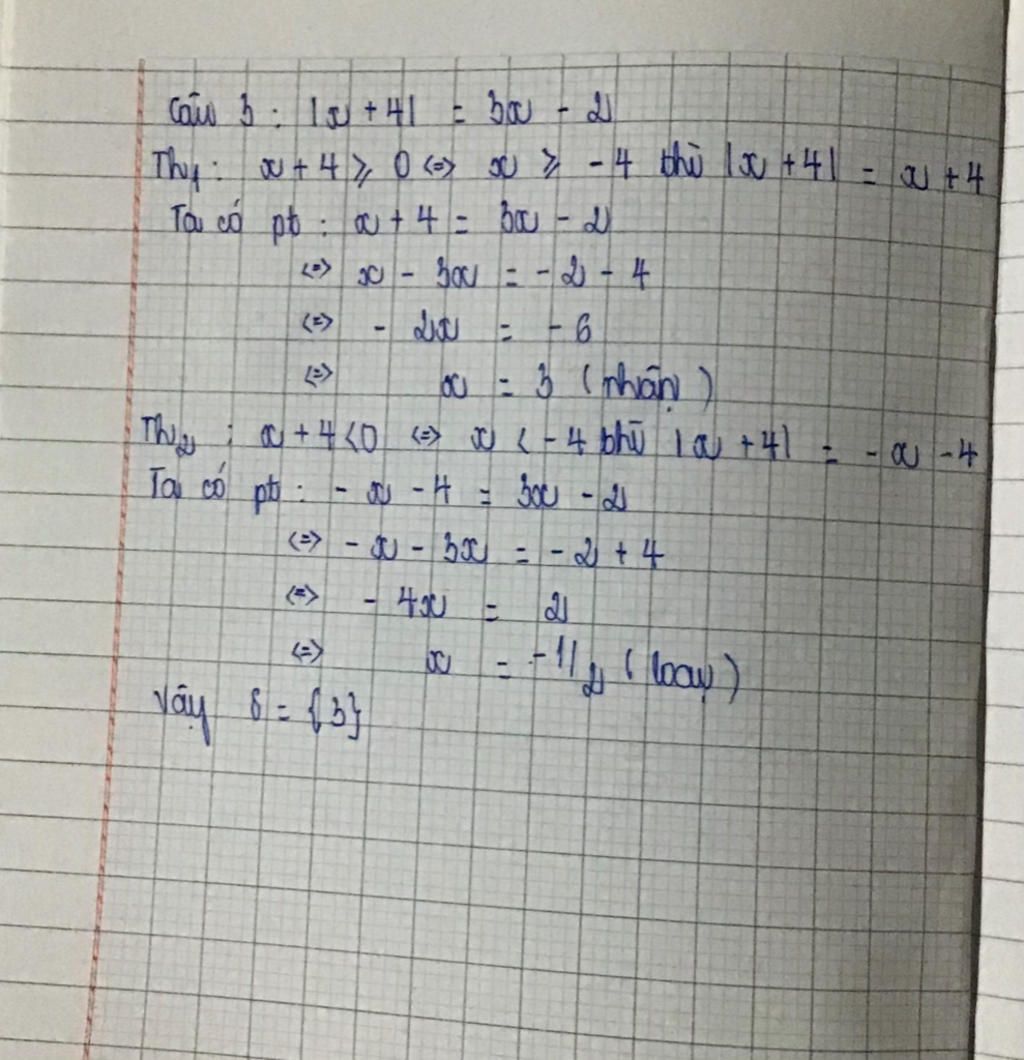 Câu 3 : |x + 4| = 3x - 2
Th1 : x + 4 ≥ 0 <=> x ≥ -4 thì |x + 4| = x + 4
Ta có pt : x + 4 = 3x - 2
<=> x - 3x = -2 - 4
<=> - 2x = - 6
<=> x = 3 (nhận)
Th2 : x + 4 < 0 <=> x < -4 thì |x + 4| = - x - 4
Ta có pt : - x - 4 = 3x - 2
<=> - x - 3x = - 2 + 4
<=> - 4x = 2
<=> x = -1/2 (loại)
Vậy S = {3}